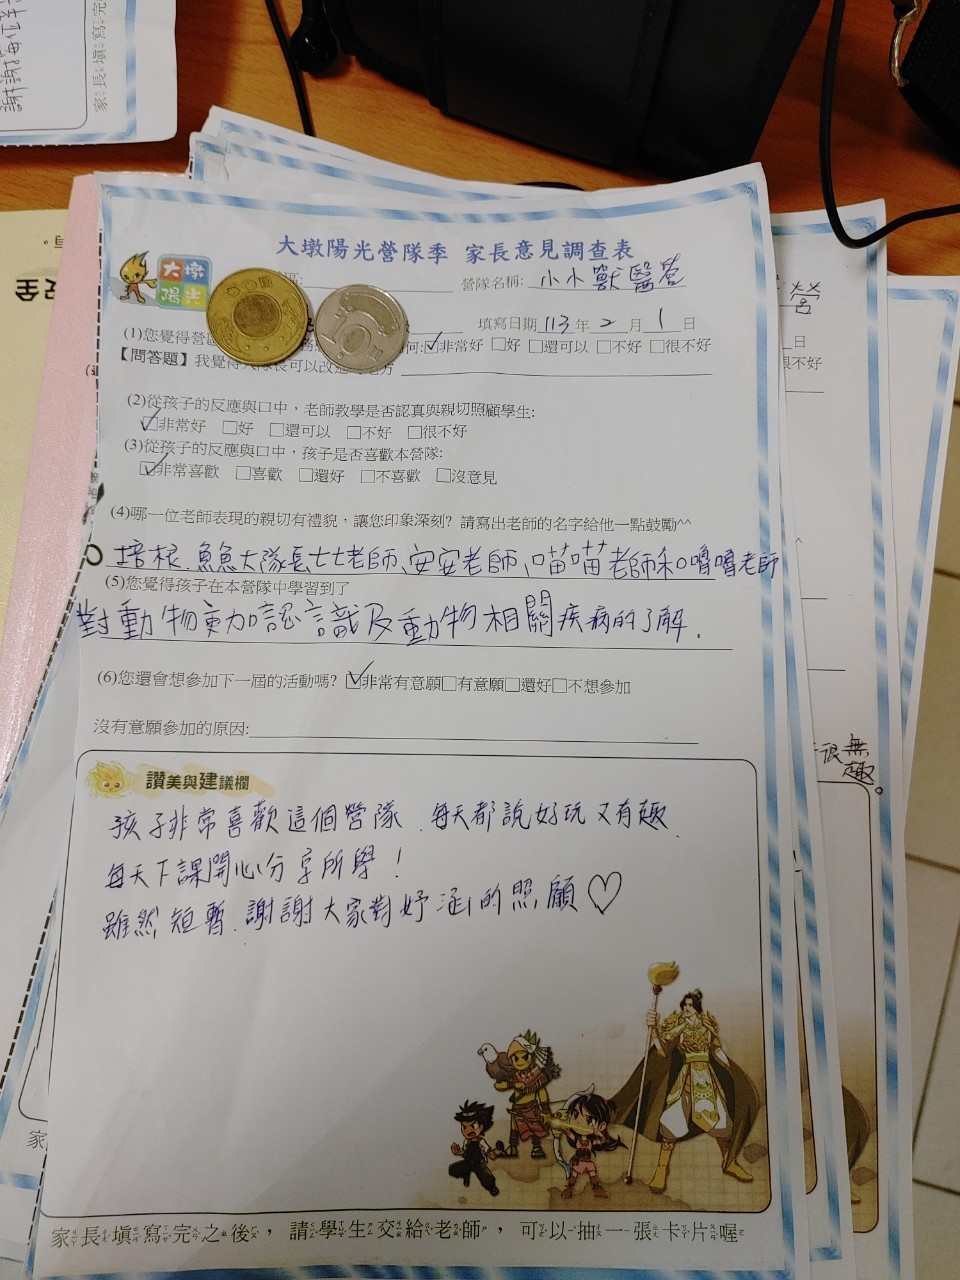 大墩陽光營隊季 家長意見調查表
大墩
陽光
營隊名稱: 小小獸醫營
填寫日期 113 年 2 月 1 日
(1)您覺得營
何:☑非常好 □好 □還可以 □不好 □很不好
【問答題】我覺得大隊長可以改進
(2)從孩子的反應與口中,老師教學是否認真與親切照顧學生:
☑非常好 □好 □還可以 □不好 □很不好
(3)從孩子的反應與口中,孩子是否喜歡本營隊:
☑非常喜歡 □喜歡 □還好 □不喜歡 □沒意見
(4)哪一位老師表現的親切有禮貌,讓您印象深刻? 請寫出老師的名字給他一點鼓勵^^
培根、魚魚大隊長七七老師、安安老師、喵喵老師和嚕嚕老師
(5)您覺得孩子在本營隊中學習到了
對動物更加認識及動物相關疾病的了解.
(6)您還會想參加下一屆的活動嗎? ☑非常有意願□有意願□還好□不想參加
沒有意願參加的原因:
讚美與建議欄
孩子非常喜歡這個營隊、每天都說好玩又有趣
每天下課開心分享所學!
雖然短暫、謝謝大家對妤涵的照顧♡
家長填寫完之後,請學生交給老師,可以抽一張卡片喔
家長填寫完
營
日
很不好
很無趣。
安全